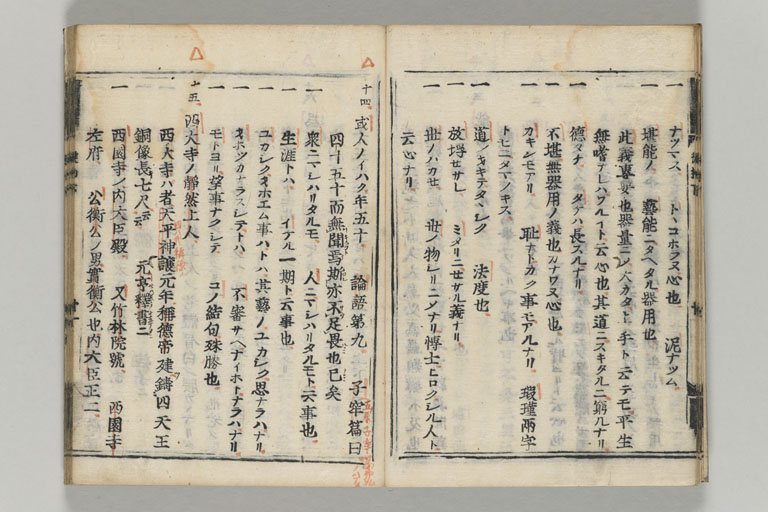 一 ナツマス トヽコホラヌ心也 泥ナツム
一 堪能ノ 藝能ニタヘタル器用也
此義肝要也器量ニシ人カタトヘ手ト云テモ平生
無嗜ナレハワルイト云心也其道ニスキタルニ窮ルナリ
德タケ タケハ長スルナリ
一 不堪無器用ノ義也カナワヌ心也
カキンモアリ 恥ナトカク事モアルナリ 瑕瑾兩字
トモニタマノキス
一 道ノヲキテタヽシク 法度也
一 放埒セサレ ミタリニセサル義ナリ
一 世ノハカセ 世ノ物シリニノナリ博士ヒロクシル人ト
云心ナリ
十四 或人ノイハク年五十 論語第九 子罕篇曰
四十五十而無聞焉斯亦不足畏也已矣
一 衆ニマシハリタルモ 人ニマシハリタルモト云事也
一 生涯トハ イテル一期ト云事也
一 ユカシクオホエム事ハトハ 其藝ノユカシク思ナラハナリ
一 オホツカナカラスシテトハ 不審サヘナイホトナラハナリ
一 モトヨリ望事ナクシテ コノ結句殊勝也
十五 西大寺ノ靜然上人
西大寺ハ者天平神護元年稱德帝建鑄四天王
銅像長七尺云云 元亨釋書ニ
一 西園寺ノ内大臣殿 又竹林院號 西園寺
左府 公衡公ノ男實衡公也内大臣正二